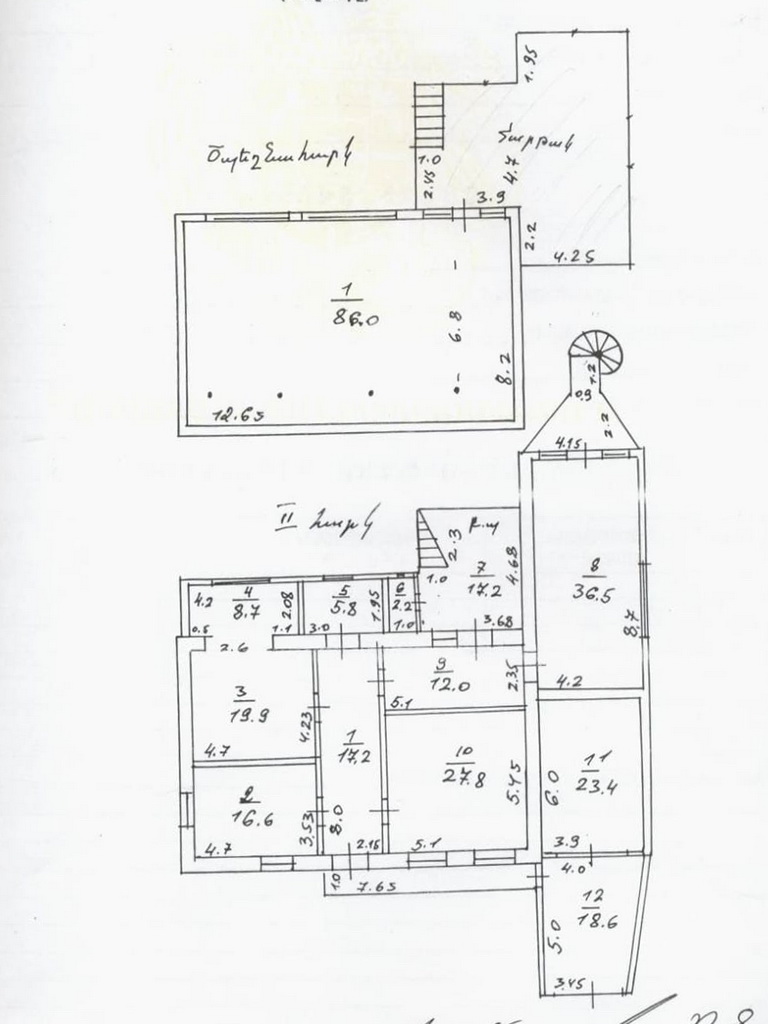 1.95
Ծաղկածածկ
1.0
2.45
4.7
3.9
2.2
4.25
1
86.0
6.8
8.2
12.65
1.2
0.9
2.2
4.15
II հարկ
2.3
1.0
7
17.2
4.68
3.68
8
36.5
8.7
4.2
4.2
4
8.7
2.08
0.5
1.1
2.6
5
5.8
1.95
3.0
6
2.2
1.0
9
12.0
2.35
5.1
3
19.9
4.23
4.7
1
17.2
8.0
2.15
10
27.8
5.45
5.1
2
16.6
3.53
4.7
11
23.4
6.0
3.9
4.0
1.0
7.65
12
18.6
5.0
3.45